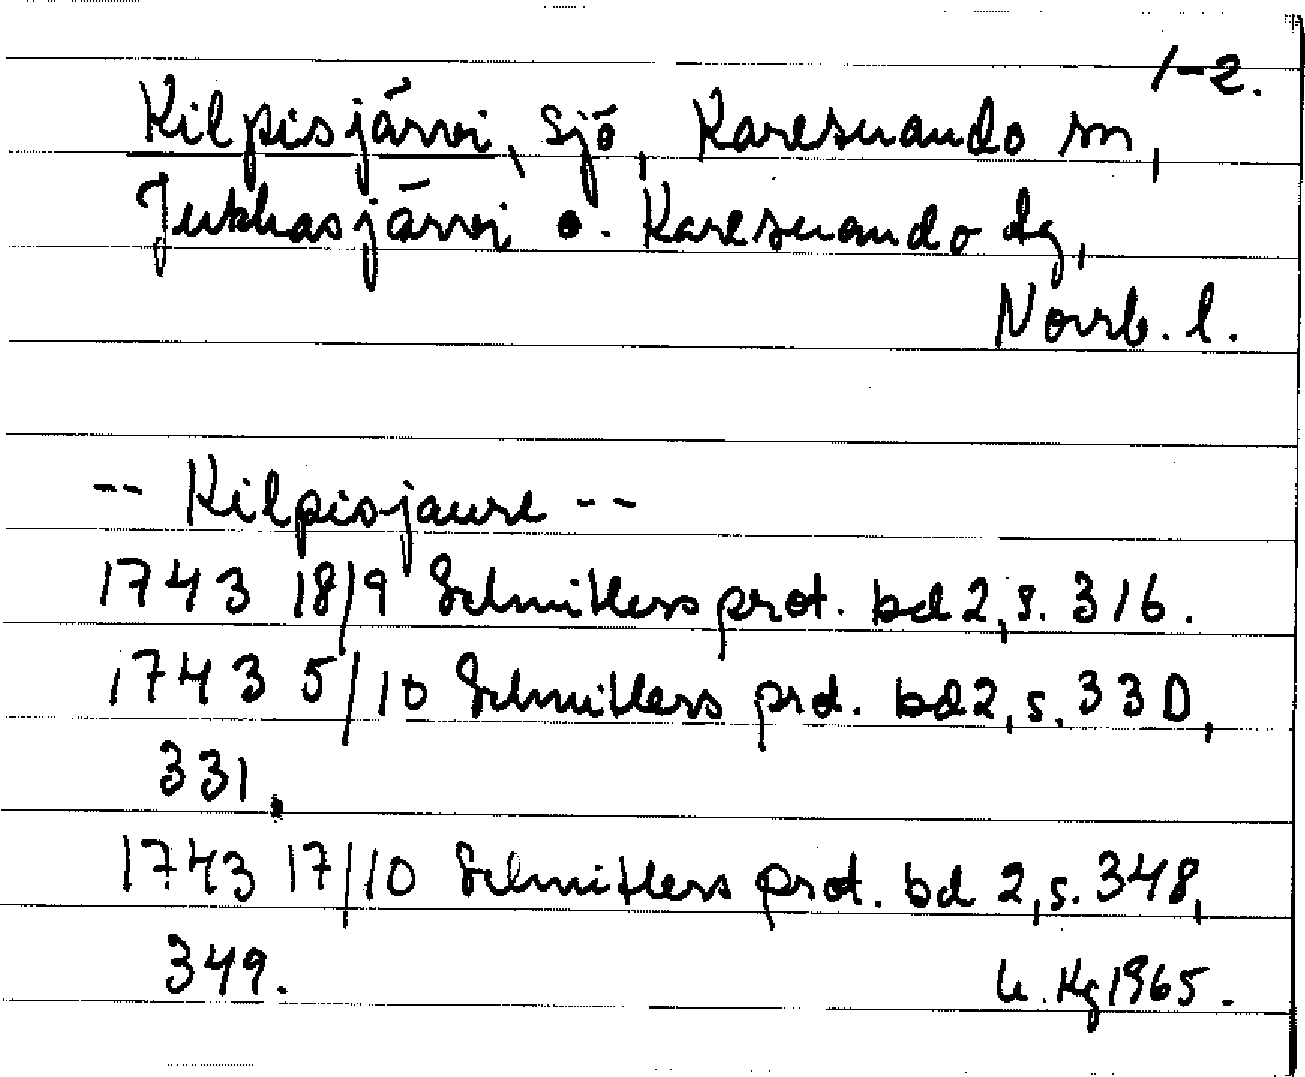 1-2.
Kilpisjärvi, sjö, Karesuando sn,
Jukkasjärvi o. Karesuando tg,
Norrb. l.
-- Kilpisjaure --
1743 18/9 Schnitlers prot. bd 2, s. 316.
1743 5/10 Schnitlers prot. bd 2, s. 330,
331.
1743 17/10 Schnitlers prot. bd 2, s. 348,
349.
U. Hg 1965.